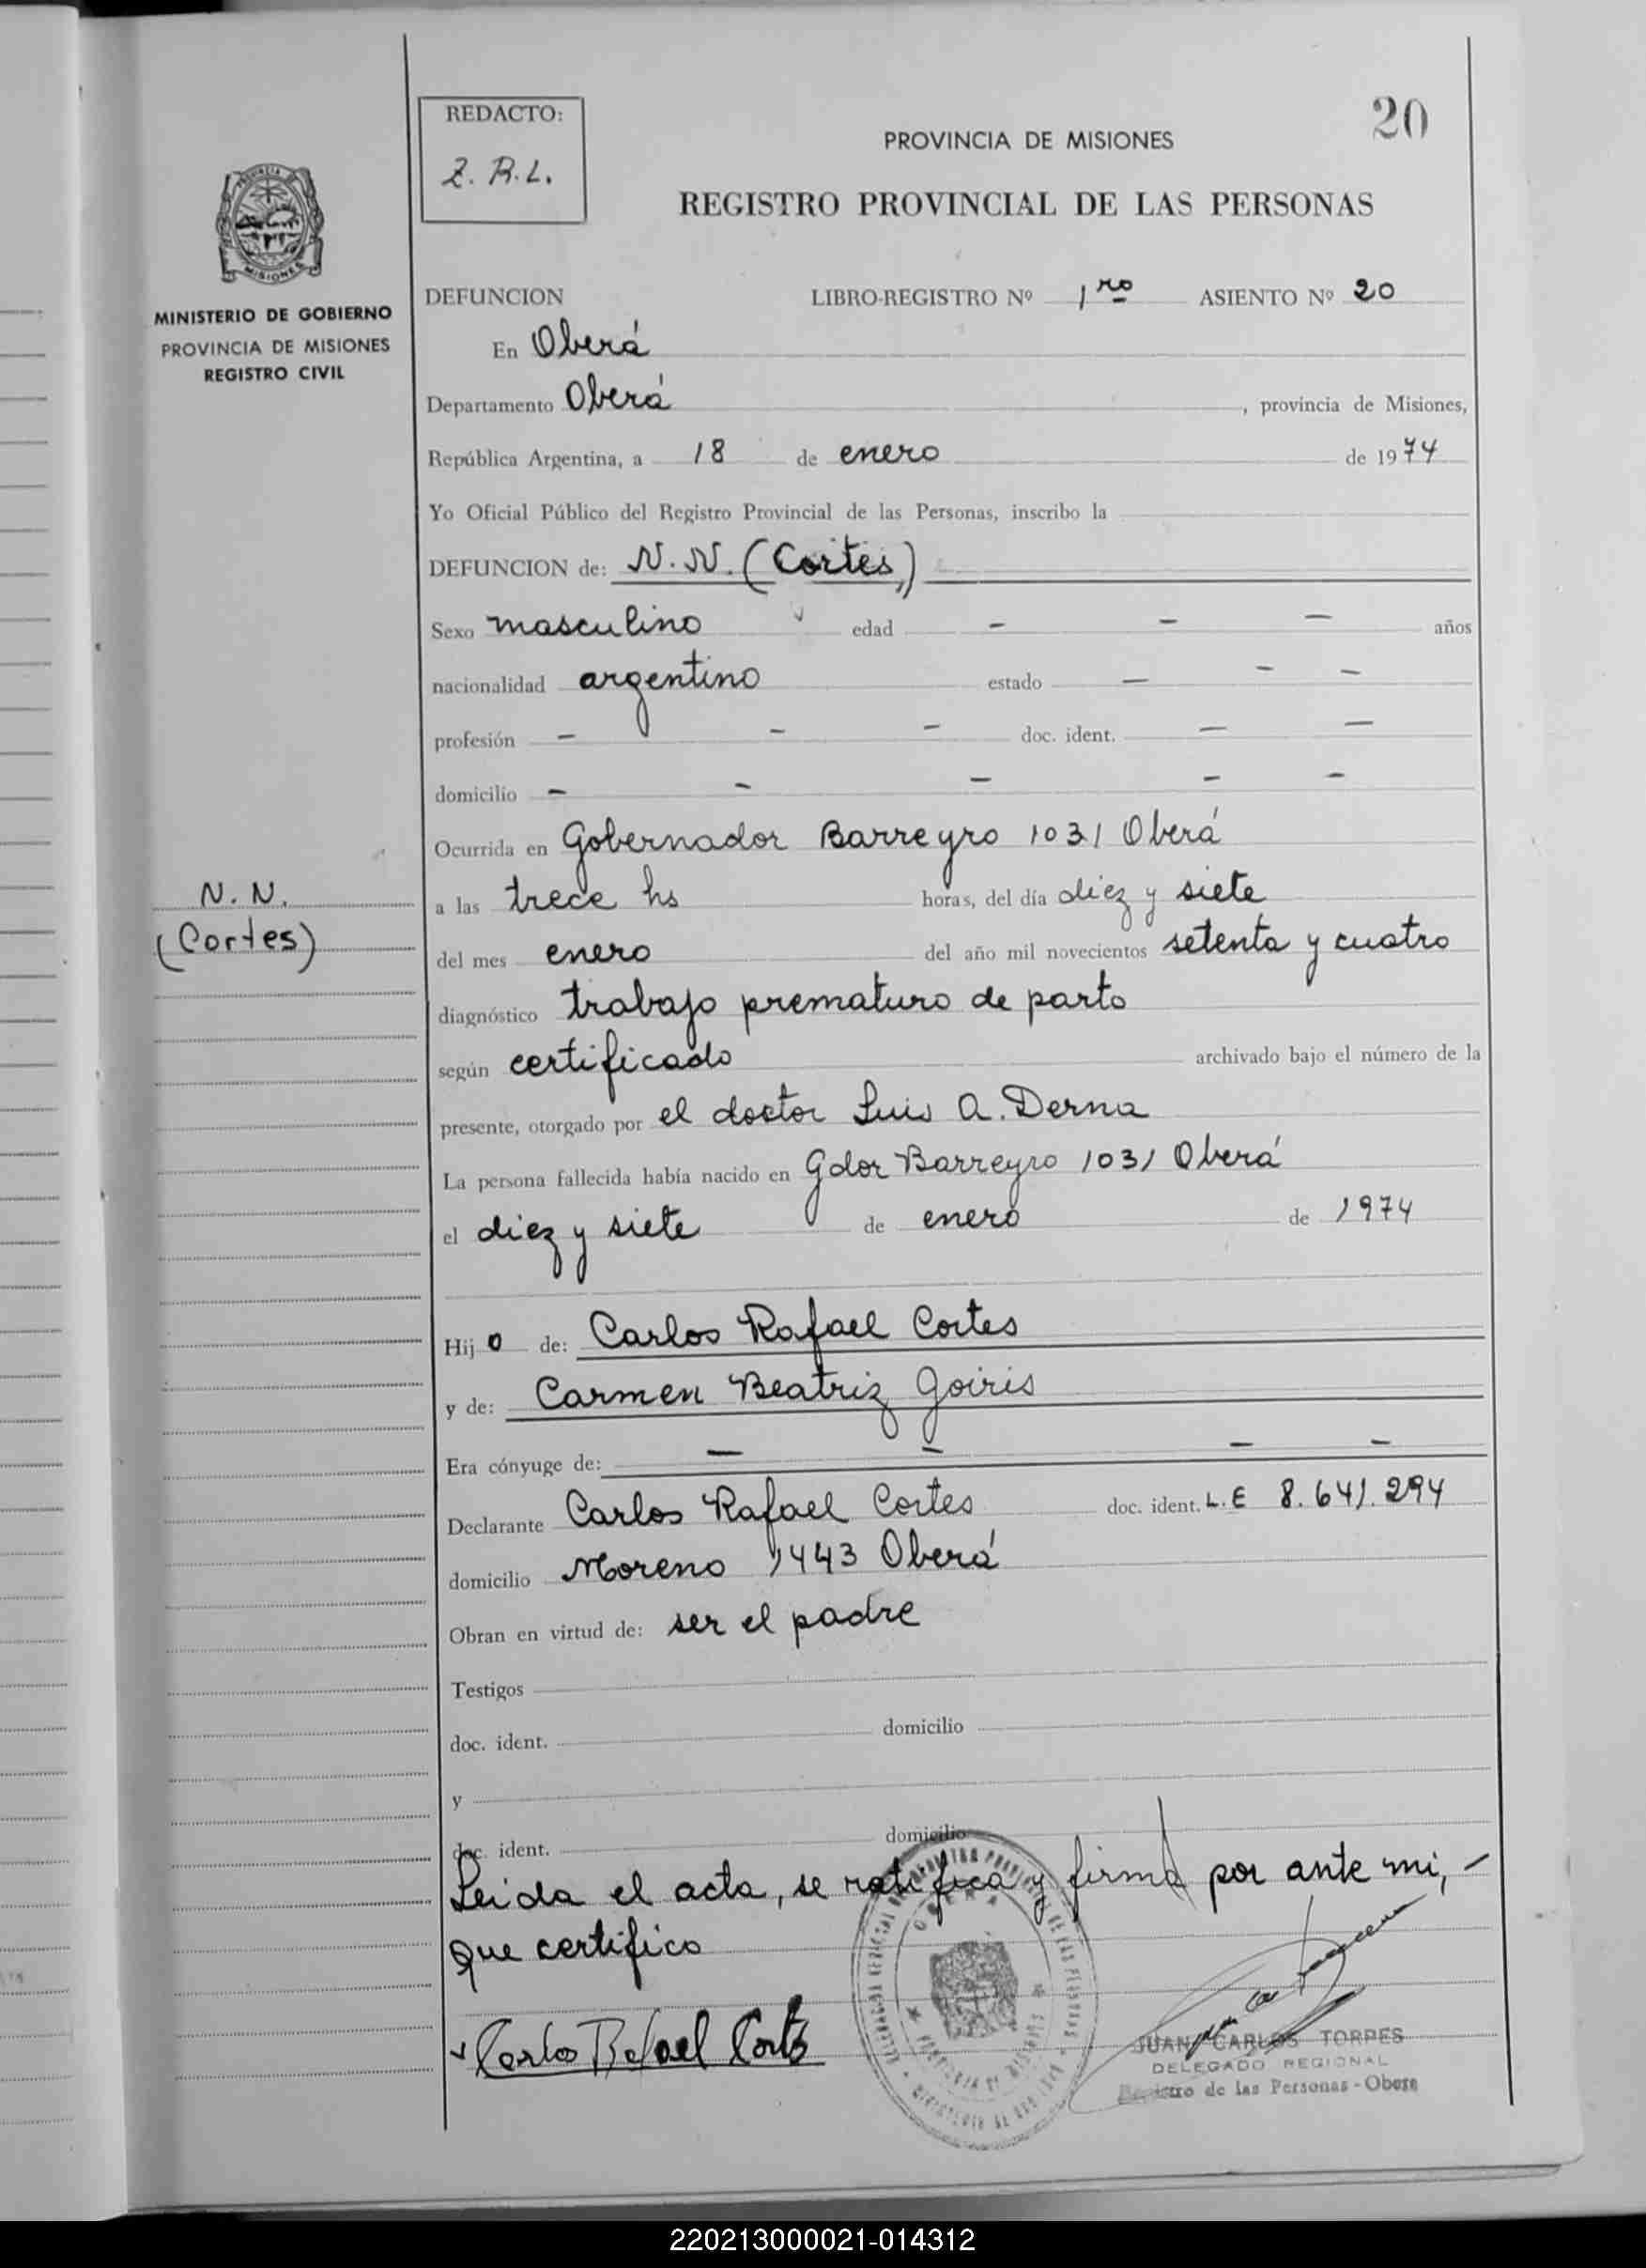 20
REDACTO:
Z. R. L.
PROVINCIA DE MISIONES
REGISTRO PROVINCIAL DE LAS PERSONAS
MISIONES
MINISTERIO DE GOBIERNO
PROVINCIA DE MISIONES
REGISTRO CIVIL
DEFUNCION LIBRO-REGISTRO Nº 1ro ASIENTO Nº 20
En Oberá
Departamento Oberá, provincia de Misiones,
República Argentina, a 18 de enero de 1974
Yo Oficial Público del Registro Provincial de las Personas, inscribo la
DEFUNCION de: N. N. (Cortes)
Sexo masculino edad - - - años
nacionalidad argentino estado - - -
profesión - - - doc. ident. - -
domicilio - - - - -
Ocurrida en Gobernador Barreyro 1031 Oberá
N. N.
(Cortes)
a las trece hs horas, del día diez y siete
del mes enero del año mil novecientos setenta y cuatro
diagnóstico trabajo prematuro de parto
según certificado archivado bajo el número de la
presente, otorgado por el doctor Luis A. Derna
La persona fallecida había nacido en Gdor Barreyro 1031 Oberá
el diez y siete de enero de 1974
Hijo de: Carlos Rafael Cortes
y de: Carmen Beatriz Goiris
Era cónyuge de: - - - -
Declarante Carlos Rafael Cortes doc. ident. L.E 8.641.294
domicilio Moreno 1443 Oberá
Obran en virtud de: ser el padre
Testigos
doc. ident. domicilio
y
doc. ident. domicilio
Leida el acta, se ratifica y firma por ante mi, -
que certifico
Carlos Rafael Cortes
JUAN CARLOS TORRES
DELEGADO REGIONAL
Registro de las Personas - Obera
220213000021-014312